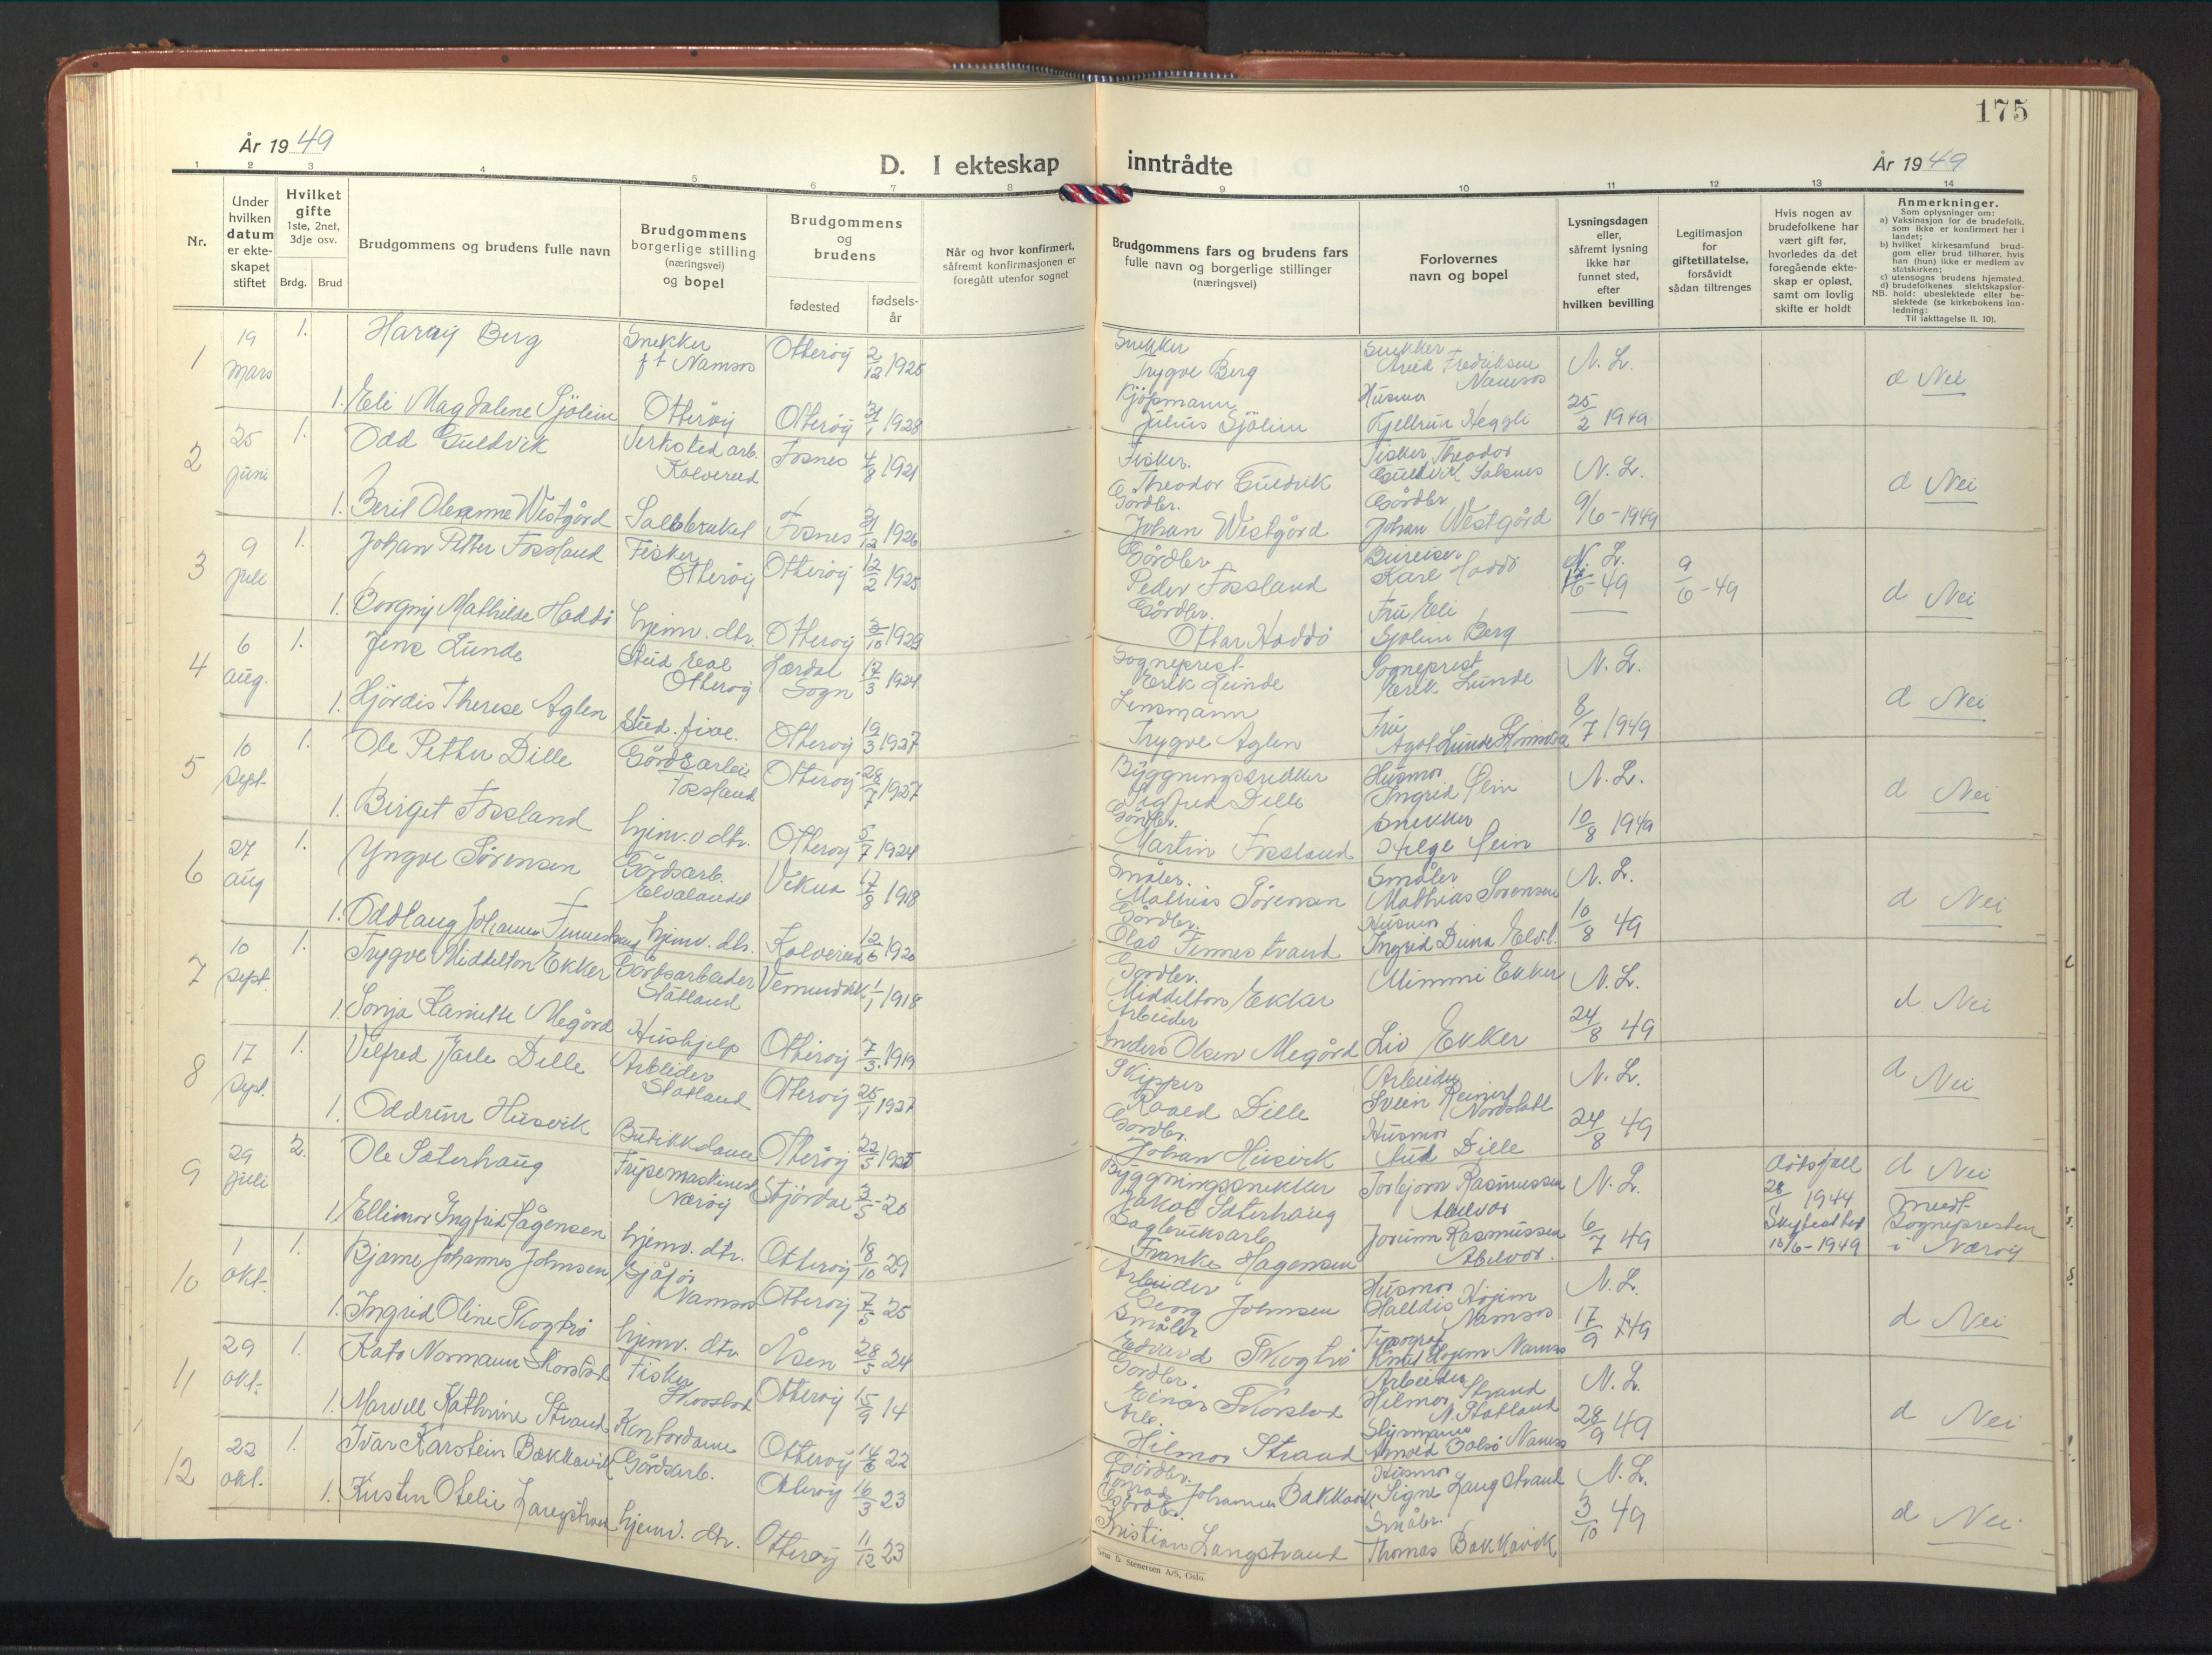 175
År 1949
D. I ekteskap inntrådte
År 1949
1 2 3 4 5 6 7 8 9 10 11 12 13 14
Nr.
Under
hvilken
datum
er ekte-
skapet
stiftet
Hvilket
gifte
1ste, 2net,
3dje osv.
Brdg. Brud
Brudgommens og brudens fulle navn
Brudgommens
borgerlige stilling
(næringsvei)
og bopel
Brudgommens
og
brudens
fødested
fødsels-
år
Når og hvor konfirmert,
såfremt konfirmasjonen er
foregått utenfor sognet
Brudgommens fars og brudens fars
fulle navn og borgerlige stillinger
(næringsvei)
Forlovernes
navn og bopel
Lysningsdagen
eller,
såfremt lysning
ikke har
funnet sted,
efter
hvilken bevilling
Legitimasjon
for
giftetillatelse,
forsåvidt
sådan tiltrenges
Hvis nogen av
brudefolkene har
vært gift før,
hvorledes da det
foregående ekte-
skap er opløst,
samt om lovlig
skifte er holdt
Anmerkninger.
Som oplysninger om:
a) Vaksinasjon for de brudefolk,
som ikke er konfirmert her i
landet;
b) hvilket kirkesamfund brud-
gom eller brud tilhører, hvis
han (hun) ikke er medlem av
statskirken;
c) utensogns brudens hjemsted.
d) brudefolkenes slektskapsfor-
NB. hold: ubeslektede eller be-
slektede (se kirkebokens inn-
ledning:
Til iakttagelse II. 10).
1 19 mars 1. Harry Berg Snekker f t Namsos Otterøy 2/12 1925
Snekker Trygve Berg Snekker Arvid Fredriksen Namsos N. L. d Nei
1. Eli Magdalene Sjölim Otterøy Otterøy 31/1 1928
Kjøpmann Julius Sjölim Husmor Kjellrun Heggli 25/2 1949
2 25 juni 1. Odd Guldvik Verksted arb. Kolvereid Fosnes 4/8 1921
Fisker. Theodor Guldvik Fisker Theodor Guldvik Salsnes N. L. d Nei
1. Beril Oleanne Westgård Fosnes 31/12 1926
Gårdbr. Johan Westgård Gårdbr Johan Westgård 9/6-1949
3 9 juli 1. Johan Petter Fossland Fisker Otterøy Otterøy 12/2 1925
Gårdbr Peder Fossland Bureiser Karl Haddö N. L. 9/6-49 d Nei
1. Borgny Mathilde Haddö hjemv. dtr. Otterøy 3/10 1929
Gårdbr. Ottar Haddö Fru Eli Sjölim Berg
4 6 aug. 1. Jens Lunde Stud real Otterøy Lærdal Sogn 17/3 1924
Sogneprest Erik Lunde Sogneprest Erik Lunde N. L. d Nei
1. Hjördis Therese Aglen Stud. Otterøy 19/3 1927
Lensmann Trygve Aglen Fru Agot Lunde 8/7 1949
5 10 sept. 1. Ole Petter Dille Gårdsarbeid Fossland Otterøy 28/7 1927
Byggningssnekker Sigfred Dille Husmor Ingrid N. L. d Nei
1. Birget Fossland hjemv. dtr. Otterøy 5/7 1924
Gårdbr. Martin Fossland Snekker Helge 10/8 1949
6 27 aug 1. Yngve Sørensen Gårdsarb. Elvalandet Vikna 17/8 1918
Småbr. Mathias Sørensen Småbr Mathias Sørensen N. L. d Nei
1. Oddlaug Johanne Finnestrand hjemv. dtr. Kolvereid 12/6 1920
Gårdbr. Olav Finnestrand Husmor Ingrid Duna 10/8 49
7 10 sept. 1. Trygve Middelton Ekker Gårdsarbeider Statland Vemundvik 1/1 1918
Gårdbr. Middelton Ekker Mimmi Ekker N. L. d Nei
1. Sonja Kamitte Megård Hushjelp Otterøy 7/3 1919
Arbeider Anders Olsen Megård Liv Ekker 24/8 49
8 17 sept. 1. Vilfred Jarle Dille Arbeider Statland Otterøy 25/1 1927
Skipper Dille Arbeider Svein Reinert N. L. d Nei
1. Oddrun Husvik Butikkdame Otterøy 22/5 1925
Gårdbr. Johan Husvik Husmor Aud Dille 24/8 49
9 29 juli 2. Ole Sæterhaug Nærøy Stjördal 3/5-20
Byggningssnekker Jakob Sæterhaug Torbjørn Rasmussen Abelvær N. L. dødsfall 28/ 1944 d Nei
1. Ellinor Ingfrid Hågensen hjemv. dtr. Otterøy 18/10 29
Sagbruksarb. Franke Hagensen Jorunn Rasmussen Abelvær. 6/7 49 10/6-1949 Sognepresten i Nærøy
10 1 okt. 1. Bjarne Johannes Johnsen Sjåför Namsos Otterøy 7/5 25
Arbeider Georg Johnsen Husmor Halldis Hojem Namsos N. L. d Nei
1. Ingrid Oline Skogtrö hjemv. dtr. Åsen 28/5 24
Småbr Edvard Skogtrö Typograf Knut Hojem Namsos 17/9 49
11 29 okt. 1. Kato Normann Skorstad Fisker Skorstad Otterøy 15/9 14
Gårdbr. Einar Skorstad Arbeider Hilmar Strand N. Statland N. L. d Nei
1. Marvell Kathrine Strand Kontordame Otterøy 14/6 22
Arb. Hilmar Strand Styrmann Arnold Bolsö Namsos 28/9 49
12 22 okt. 1. Ivar Karstein Bakkavik Gårdsarb. Otterøy 16/3 23
Gårdbr. Konrad Johannes Bakkavik Husmor Signe Langstrand N. L. d Nei
1. Kristen Otelie Langstrand hjemv. dtr. Otterøy 11/12 23
Gårdbr. Kristian Langstrand Småbr. Thomas Bakkavik 3/10 49
Sem & Stenersen A/S, Oslo.